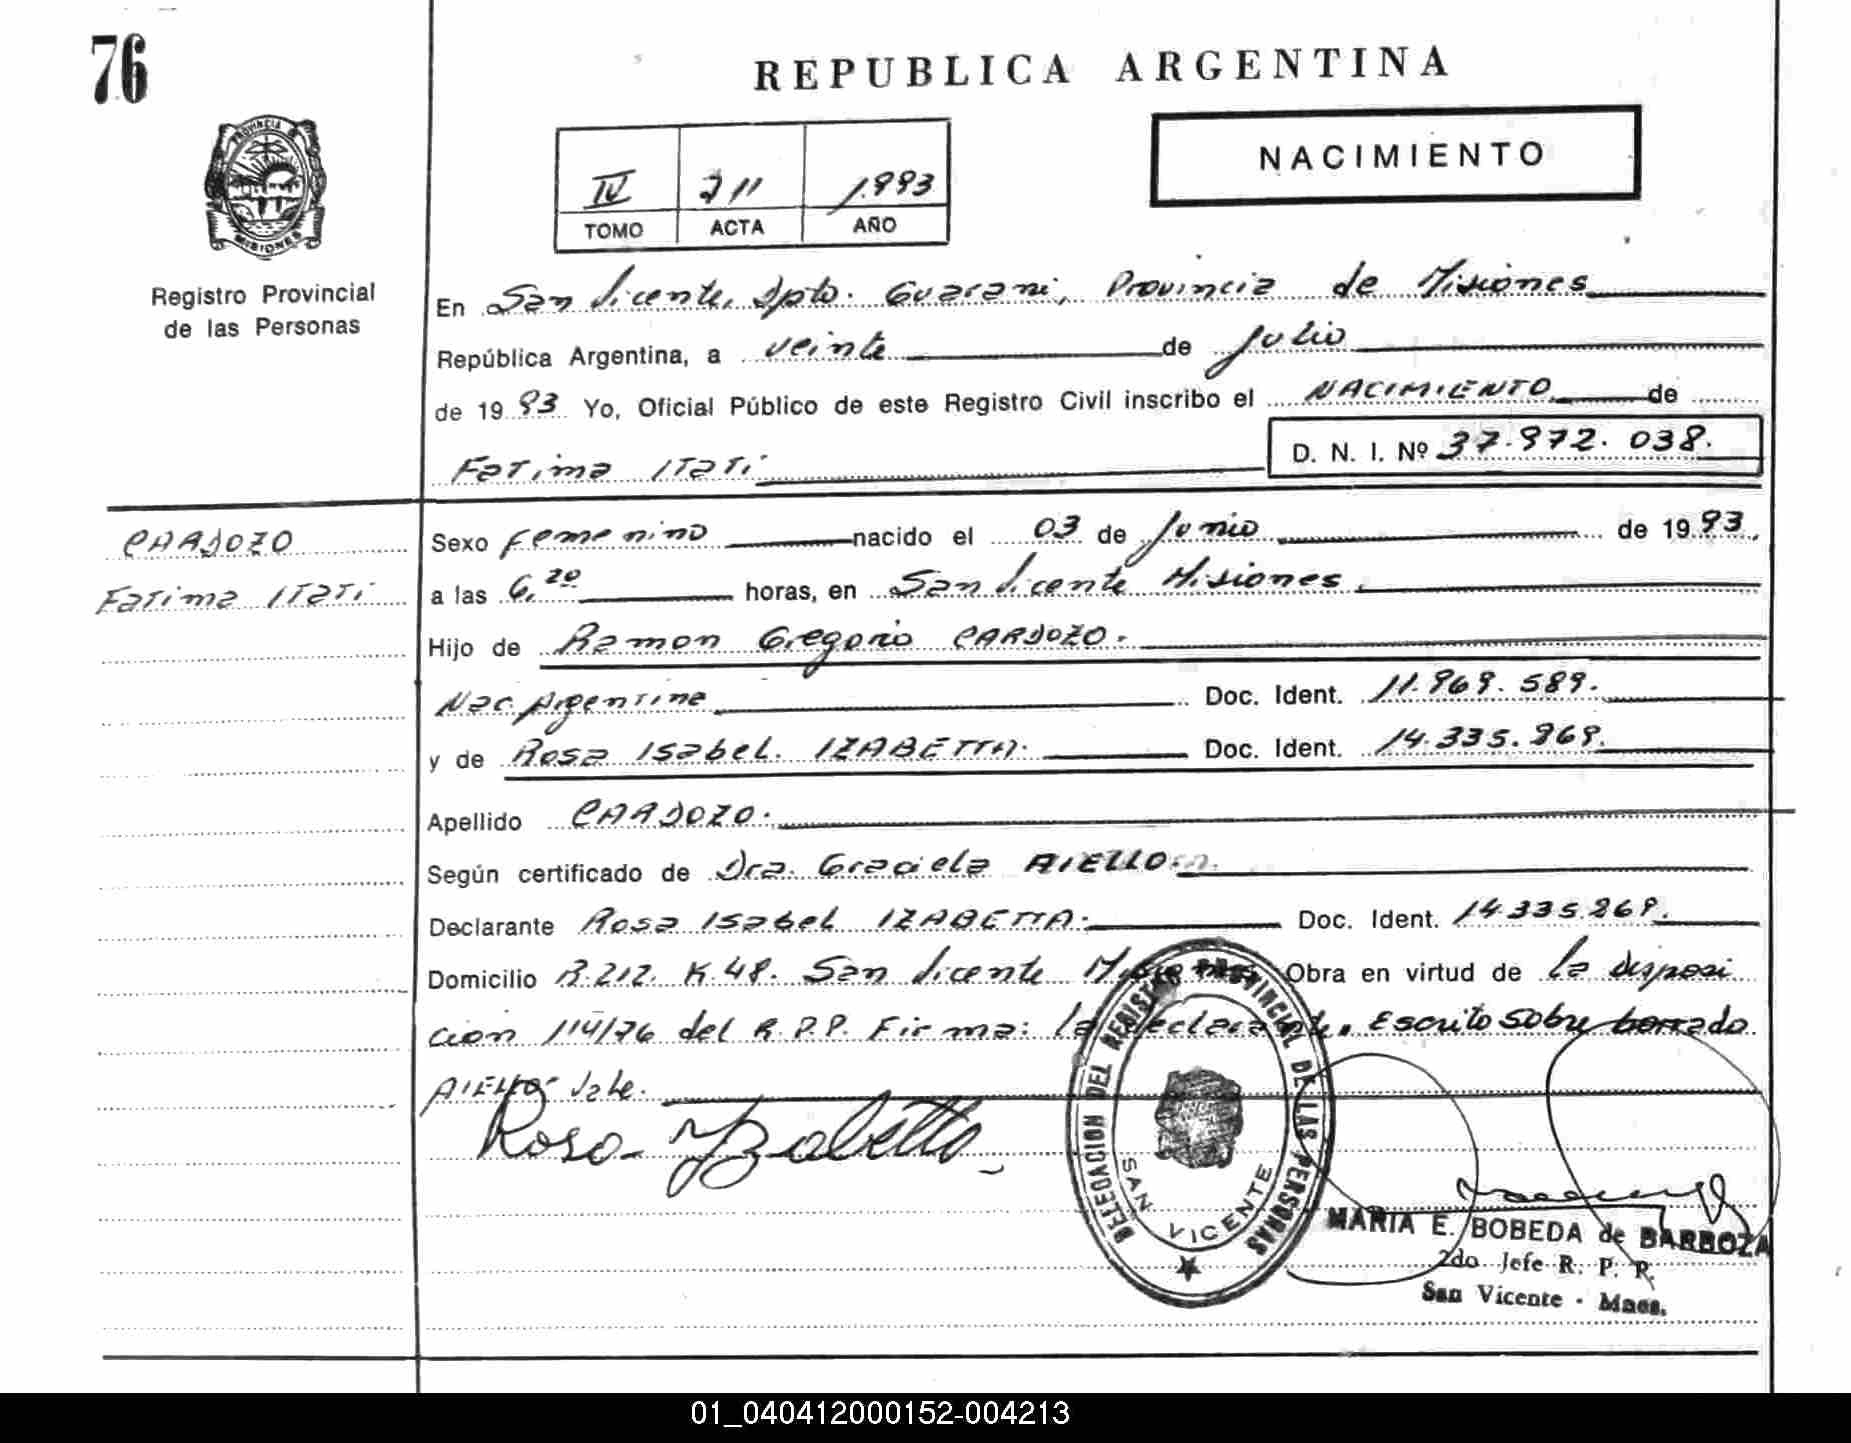 76
REPUBLICA ARGENTINA
NACIMIENTO
PROVINCIA D
MISIONES
Registro Provincial
de las Personas
IV 711 1.993
TOMO ACTA AÑO
En San Vicente, Dpto. Guarani, Provincia de Misiones
República Argentina, a veinte de Julio
de 1993 Yo, Oficial Público de este Registro Civil inscribo el NACIMIENTO de
Fatima Itati D. N. I. Nº 37.972.038.
CARDOZO
Fatima Itati
Sexo Femenino nacido el 03 de Junio de 1993.
a las 6,20 horas, en San Vicente Misiones.
Hijo de Ramon Gregorio CARDOZO.
Nac. Argentina Doc. Ident. 11.969.589.
y de Rosa Isabel. IZABETTA. Doc. Ident. 14.335.969.
Apellido CARDOZO.
Según certificado de Dra. Graciela AIELLO.
Declarante Rosa Isabel IZABETTA. Doc. Ident. 14.335.969.
Domicilio R.212. K.48. San Vicente Misiones Obra en virtud de la disposi
cion 114/76 del R.P.P. Firma: la declarante. Escrito sobre borrado
AIELLO. Vale.
Rosa Yzabetta
DELEGACION DEL REGISTRO PROVINCIAL DE LAS PERSONAS
SAN VICENTE
MARIA E. BOBEDA de BARBOZA
2do Jefe R. P. P.
San Vicente - Mnes.
01_040412000152-004213